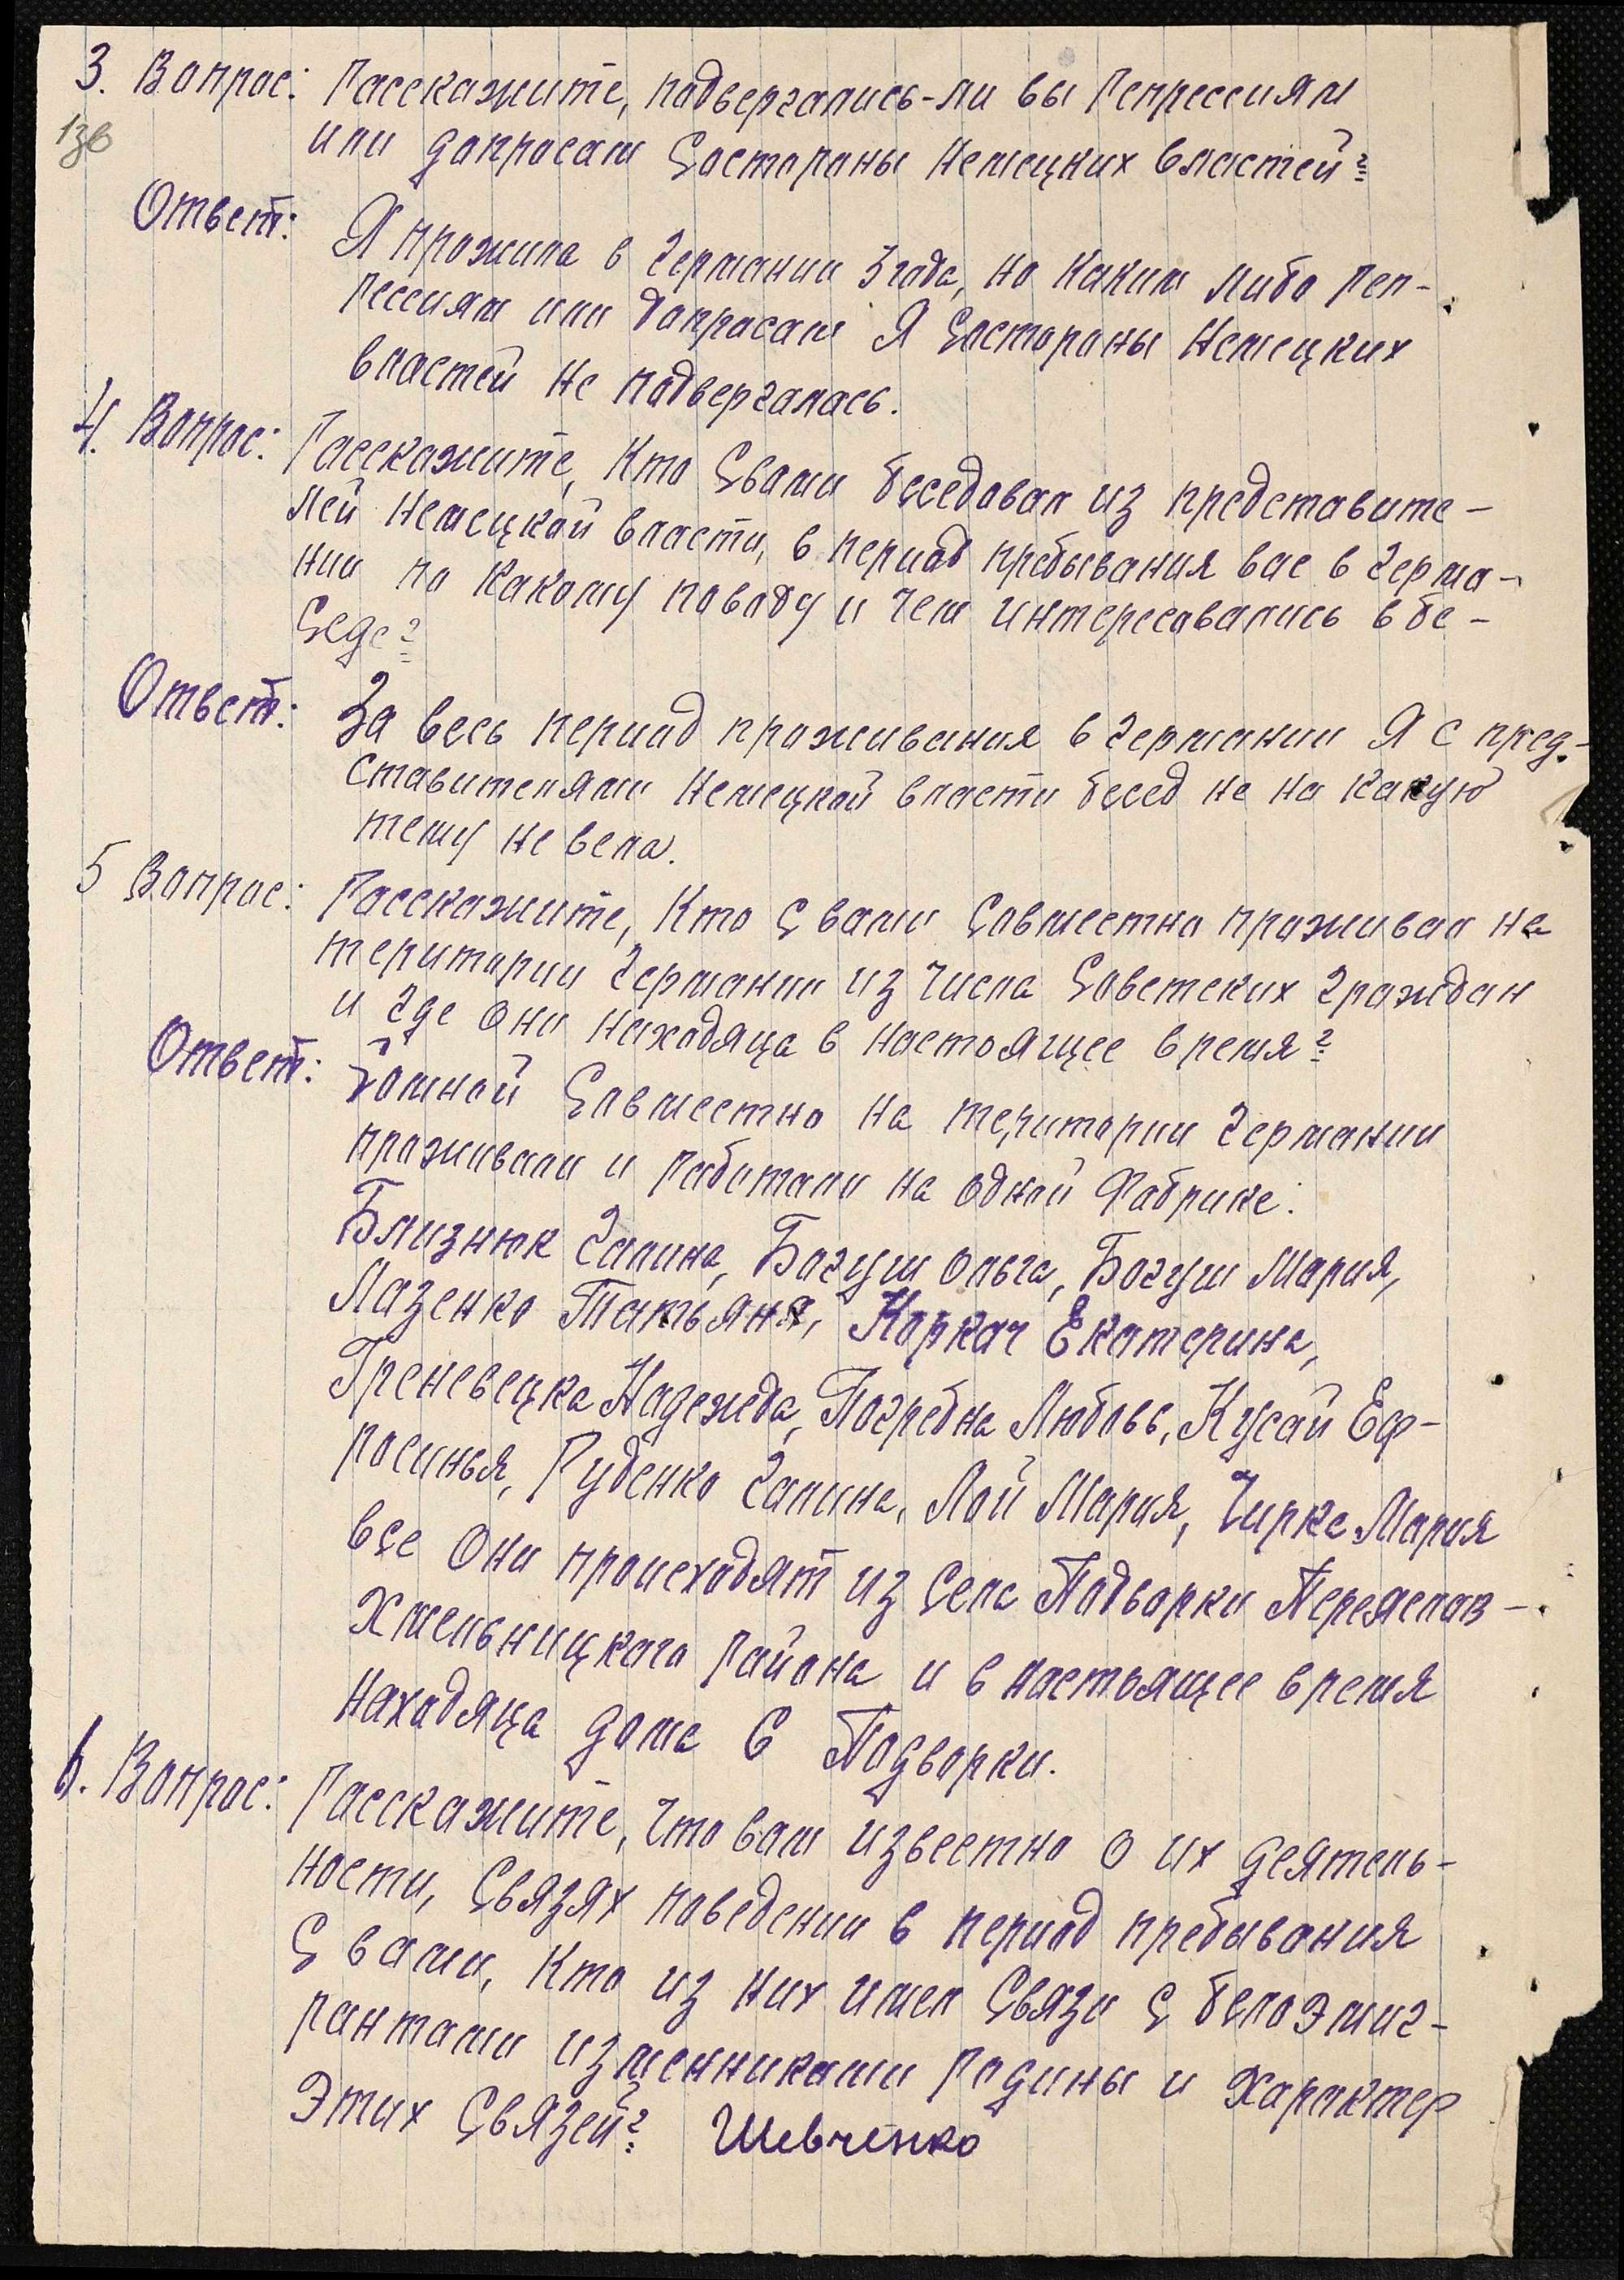 3. Вопрос: Расскажите, подвергались-ли вы Репрессиям
или допросам Состороны Немецких властей?
Ответ: Я прожила в Германии 3 года, но Каким либо Реп-
рессиям или допросам Я Состороны Немецких
властей не подвергалась.
4. Вопрос: Расскажите, Кто Свами беседовал из представите-
лей Немецкой власти, в период пребывания вас в Герма-
нии по какому поводу и чем интересовались в бе-
Седе?
Ответ: За весь период проживания в Германии Я с пред-
ставителями Немецкой власти бесед не на какую
тему не вела.
5 Вопрос: Расскажите, Кто С вами Совместно проживал на
територии Германии из числа Советских Граждан
и где они находяца в настоящее время?
Ответ: Зомной Совместно на територии Германии
проживали и работали на одной Фабрике:
Близнюк Галина, Богуш Ольга, Богуш Мария,
Лазенко Татьяна, Коркач Екатерина,
Греневецка Надежда, Погребна Любовь, Кусай Еф-
росинья, Руденко Галина, Лой Мария, Чирка Мария
все Они происходят из Села Подворки Переяслав-
Хмельницкого Района и в настоящее время
находяца дома С Подворки.
6. Вопрос: Расскажите, Что вам известно о их деятель-
ности, Связях поведении в период пребывания
С вами, Кто из них имел Связи С белоэмиг-
рантами изменниками Родины и характер
Этих Связей? Шевченко